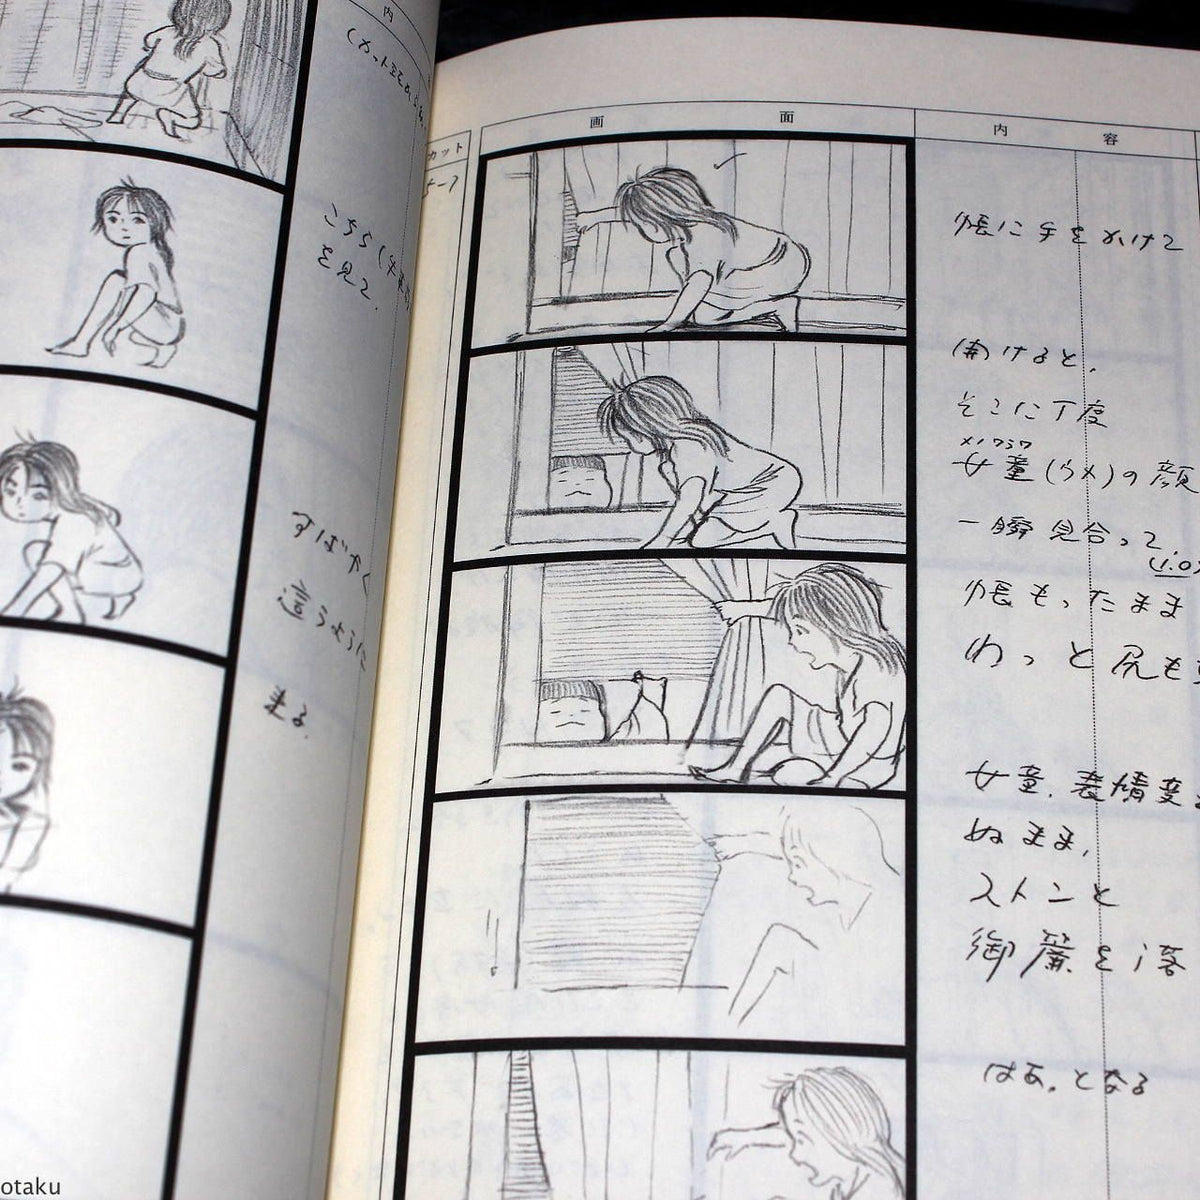 内
こちら
を見て、
すばやく
這うように
来る。
カット
画 面
内 容
帳に手をかけて
開けると、
そこに丁度
メノワラワ
女童(ウメ)の顔
一瞬見合って、
(1.0)
帳もったまま
わっと尻も
女童、表情変
ぬまま、
ストンと
御簾を落
はあ、となる
otaku